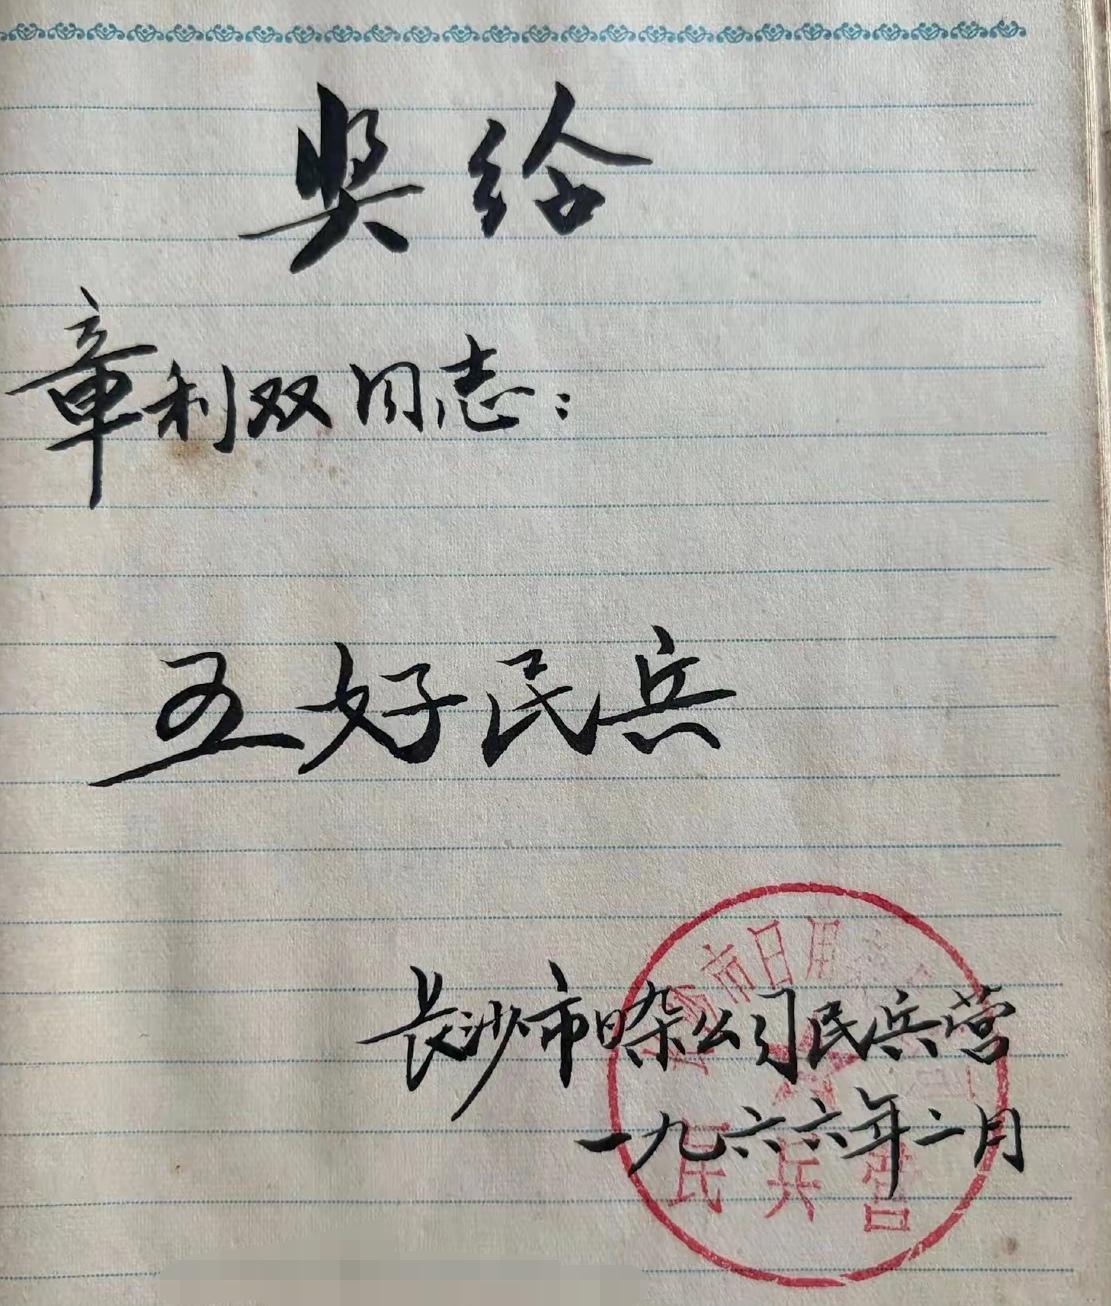 奖给
章利双同志：
五好民兵
长沙市日杂公司民兵营
一九六六年二月
市日用
民兵营